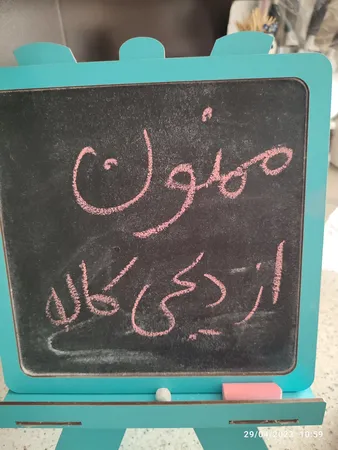 ممنون
از دیجی کالا
29/04/2023 10:59